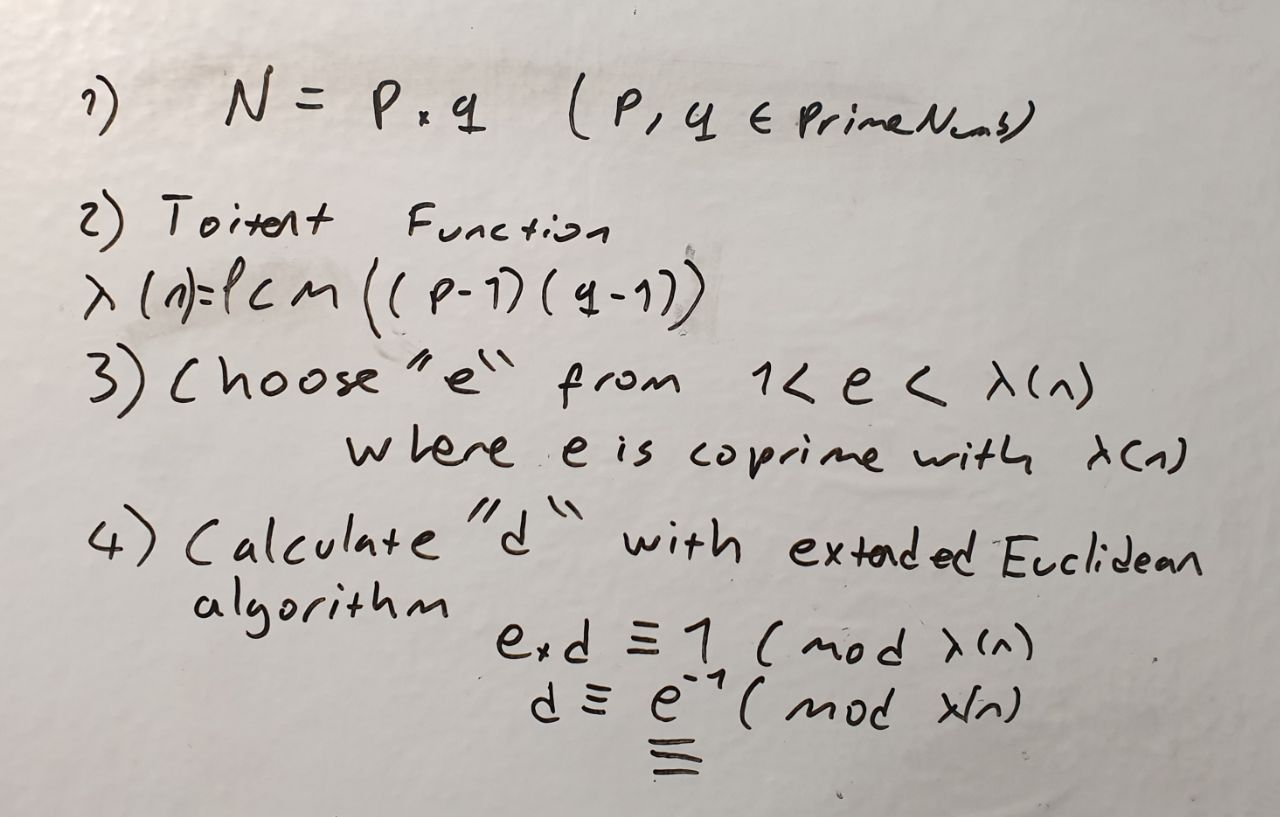 1) N = P × q (P, q ∈ PrimeNums)
2) Toitent Function
λ(n)=lcm((p-1)(q-1))
3) Choose "e" from 1< e < λ(n)
where e is coprime with λ(n)
4) Calculate "d" with extended Euclidean
algorithm
e × d ≡ 1 (mod λ(n)
d ≡ e⁻¹ (mod λ(n)